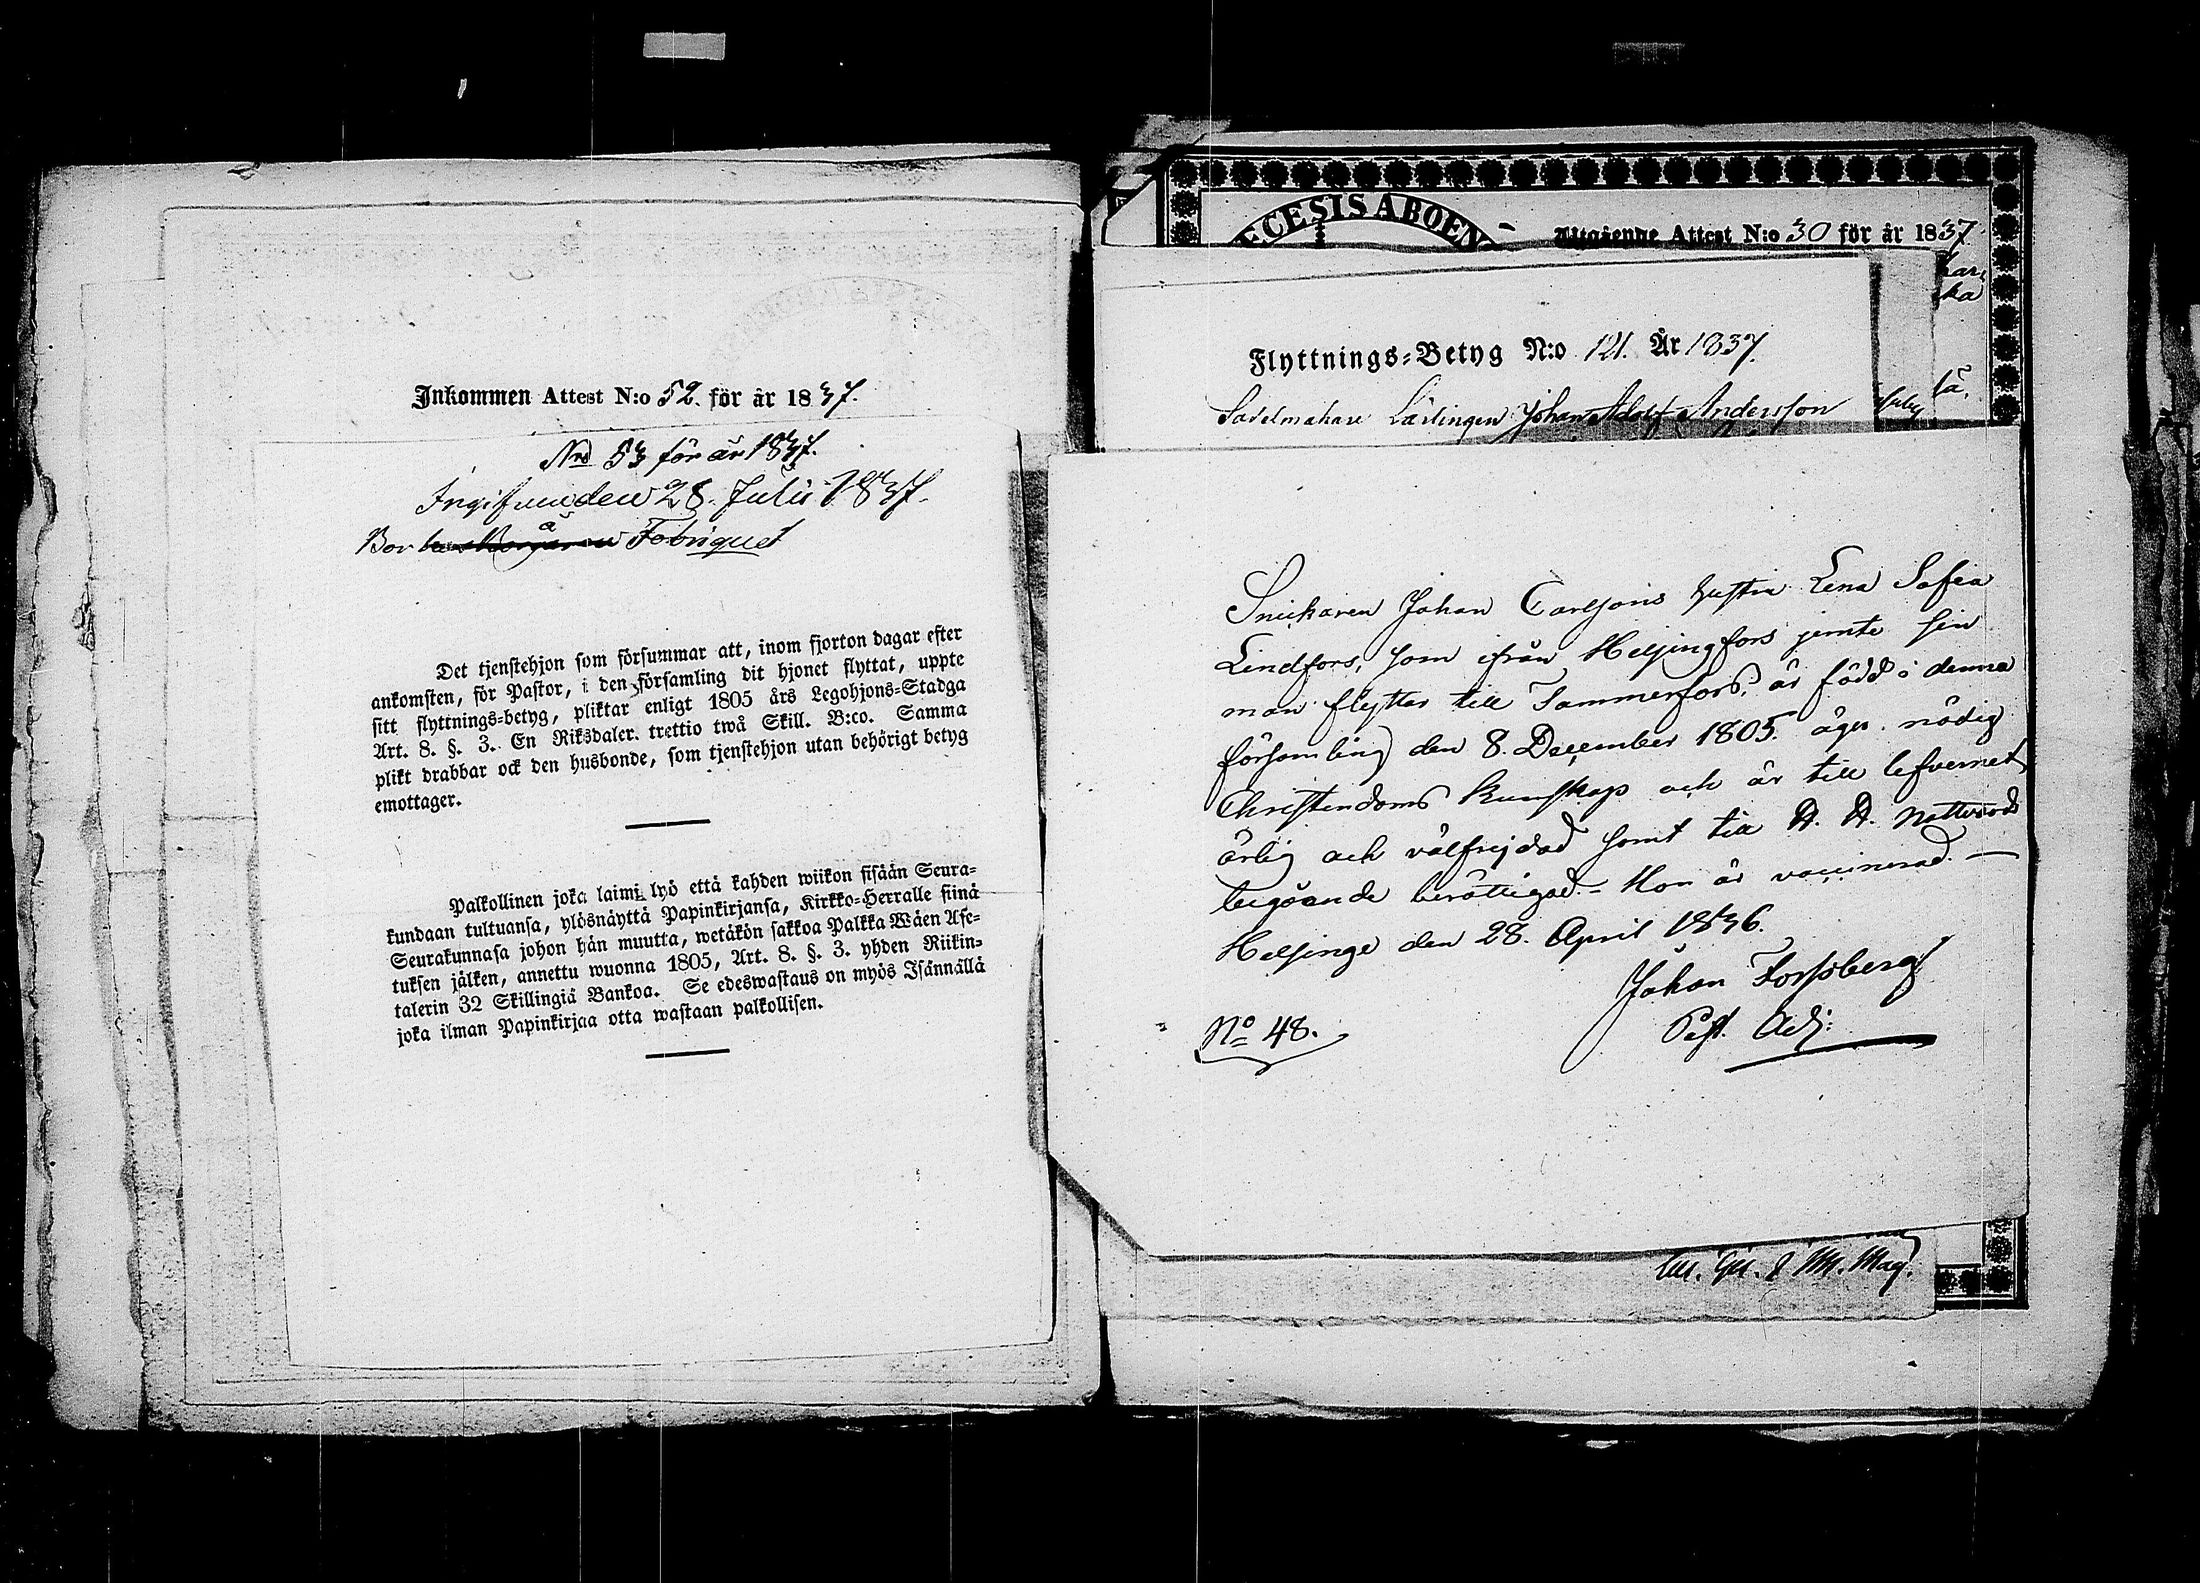 Inkommen Attest N:o 52. för år 1837.
Nro 53 för år 1837.
Ingifven den 28. Julii 1837.
Bor å Fabriquet
Det tjenstehjon som försummar att, inom fjorton dagar efter
ankomsten, för Pastor, i den församling dit hjonet flyttat, uppte
sitt flyttnings=betyg, pliktar enligt 1805 års Legohjons=Stadga
Art. 8. §. 3. En Riksdaler. trettio twå Skill. B:co. Samma
plikt drabbar ock den husbonde, som tjenstehjon utan behörigt betyg
emottager.
Palkollinen joka laimi lyö että kahden wiikon sisään Seura=
kundaan tultuansa, ylösnäyttä Papinkirjansa, Kirkko=Herralle siinä
Seurakunnasa johon hän muutta, wetäkön sakkoa Palkka Wäen Ase=
tuksen jälken, annettu wuonna 1805, Art. 8. §. 3. yhden Riikin=
talerin 32 Skillingiä Bankoa. Se edeswastaus on myös Isännällä
joka ilman Papinkirjaa otta wastaan palkollisen.
ECESIS ABOEN
Utgående Attest N:o 30 för år 1837.
Flyttnings=Betyg N:o 121. År 1837.
Sadelmakare Lärlingen Johan Adolf Andersson
Snickaren Johan Carlsons hustru Lena Sofia
Lindfors, som ifrån Helsingfors jemte sin
man flyttar till Tammerfors, är född i denna
församling den 8. December 1805. äger nödig
Christendoms kunskap och är till lefvernet
ärlig och välfrejdad samt till H. H. Nattvards
begående berättigad. – Hon är vaccinerad. —
Helsinge den 28. April 1836.
Johan Forssberg
Past. Adj:
No 48.